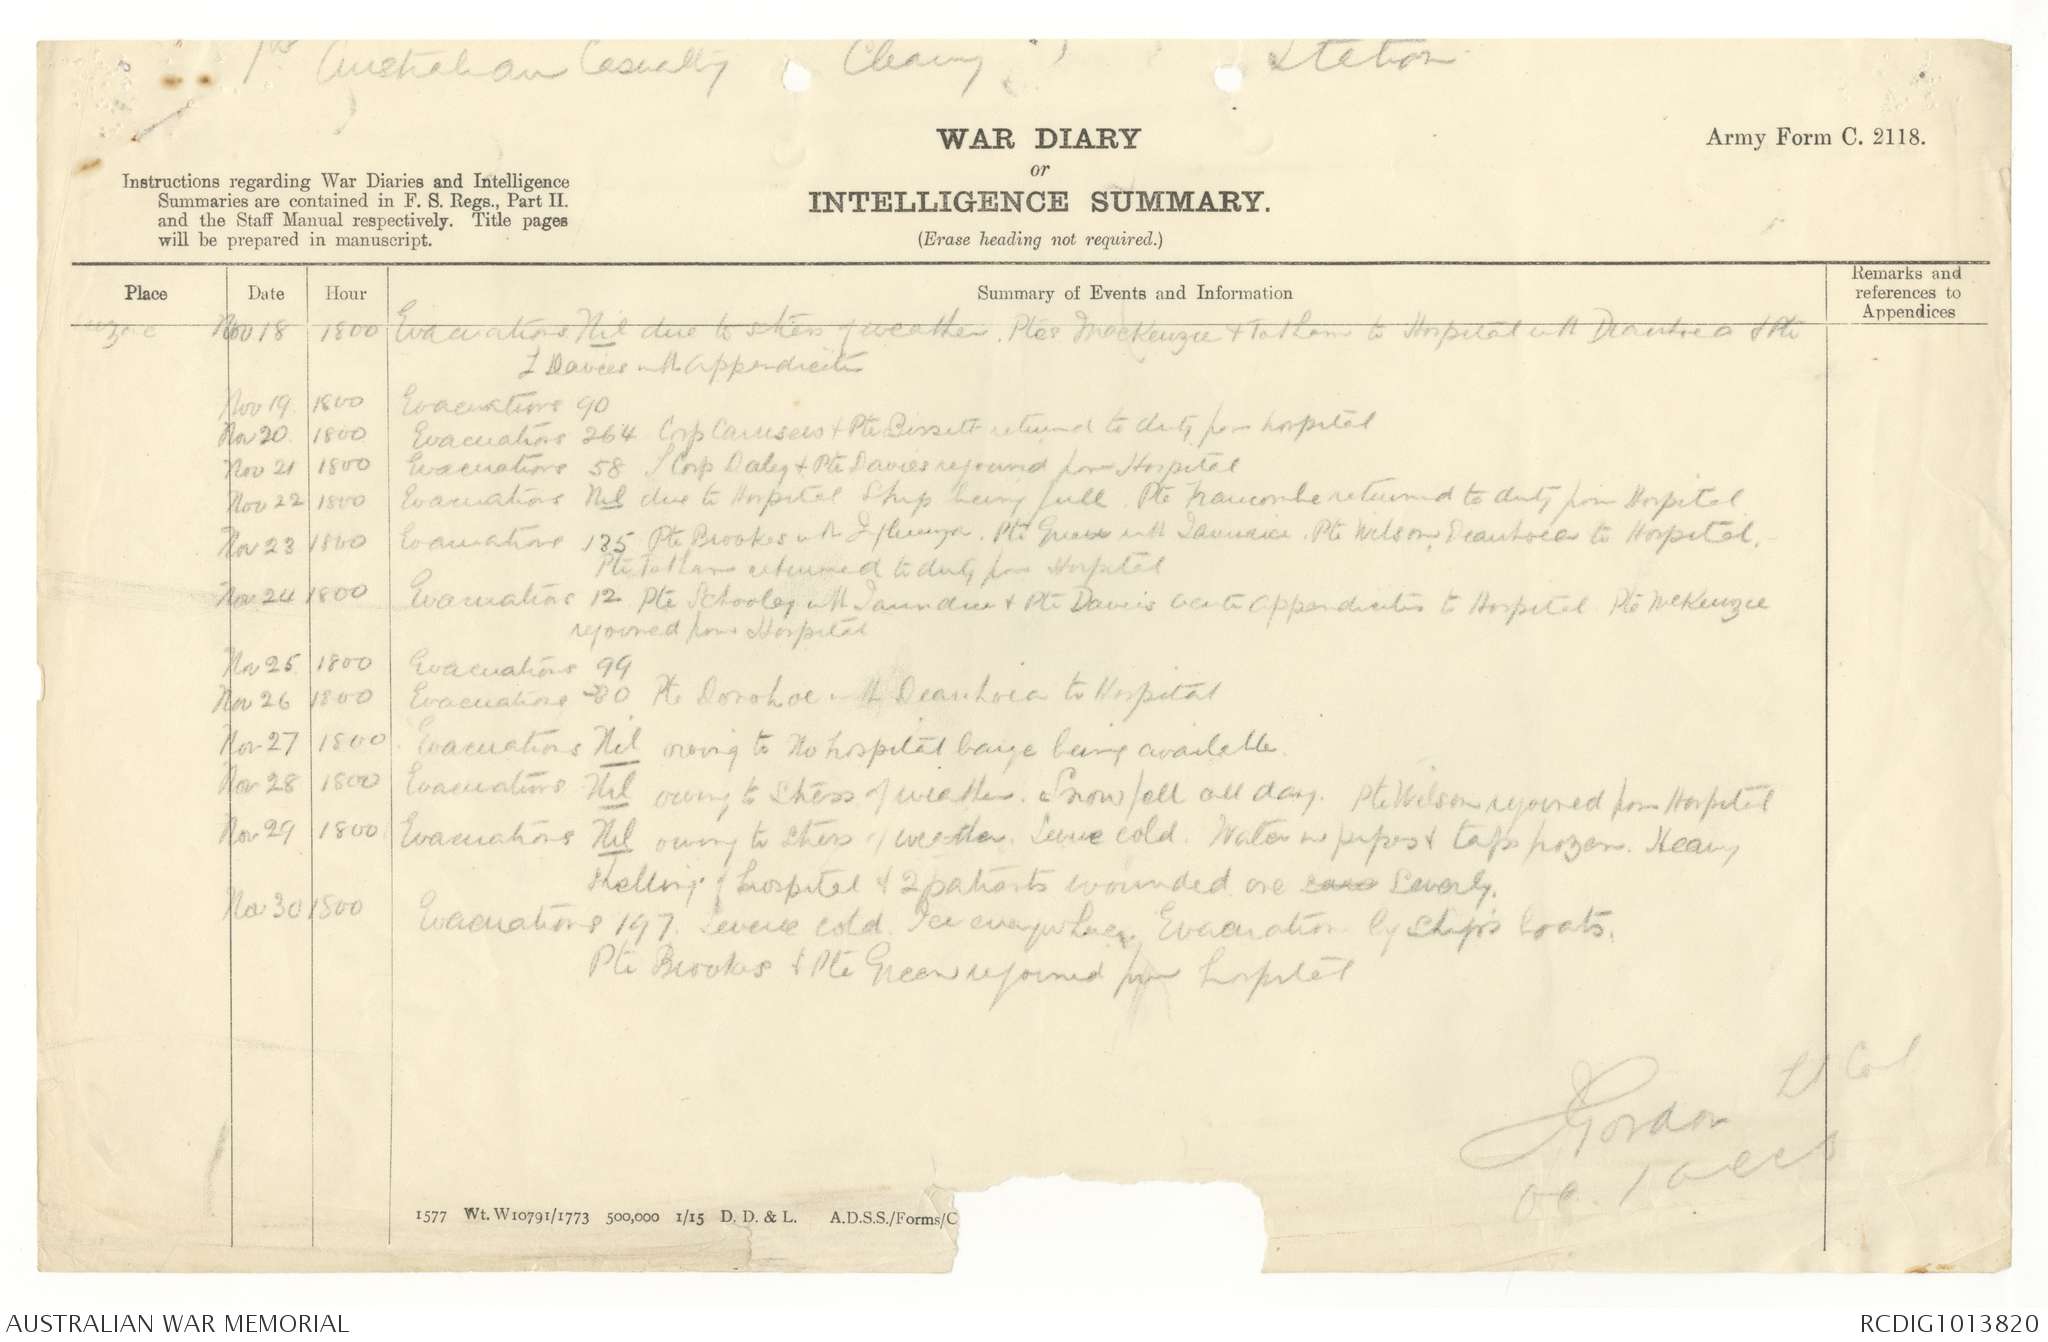 1st Australian Casualty Clearing Station
WAR DIARY
or
INTELLIGENCE SUMMARY.
(Erase heading not required.)
Army Form C. 2118.
Instructions regarding War Diaries and Intelligence
Summaries are contained in F. S. Regs., Part II.
and the Staff Manual respectively. Title pages
will be prepared in manuscript.
Place Date Hour Summary of Events and Information Remarks and references to Appendices
Nov 18 1800 Evacuations Nil due to stress of weather. Ptes MacKenzie & Tatham to Hospital with Diarrhoea & Pte
Davies with Appendicitis
Nov 19 1800 Evacuations 90
Nov 20 1800 Evacuations 264 Corp & Pte Bissett returned to duty from hospital
Nov 21 1800 Evacuations 58 Corp Daley & Pte Davies rejoined from Hospital
Nov 22 1800 Evacuations Nil due to Hospital Ship being full. Pte Francombe returned to duty from Hospital
Nov 23 1800 Evacuations 135 Pte Brookes with Influenza. Pte Green with Jaundice. Pte Wilson Diarrhoea to Hospital.
Pte Tatham returned to duty from Hospital
Nov 24 1800 Evacuations 12 Pte Schooley with Jaundice & Pte Davies acute appendicitis to Hospital Pte McKenzie
rejoined from Hospital
Nov 25 1800 Evacuations 99
Nov 26 1800 Evacuations 80 Pte Donohoe with Diarrhoea to Hospital
Nov 27 1800 Evacuations Nil owing to No hospital barge being available.
Nov 28 1800 Evacuations Nil owing to stress of weather. Snow fell all day. Pte Wilson rejoined from Hospital
Nov 29 1800 Evacuations Nil owing to stress of weather. Severe cold. Water in pipes & taps frozen. Heavy
shelling of hospital & 2 patients wounded one severely.
Nov 30 1800 Evacuations 197. Severe cold. Ice everywhere. Evacuation by ship's boats.
Pte Brookes & Pte Green rejoined from hospital
J Gordon Lt Col
OC. 1 ACCS
1577 Wt. W10791/1773 500,000 1/15 D. D. & L. A.D.S.S./Forms/C
AUSTRALIAN WAR MEMORIAL
RCDIG1013820